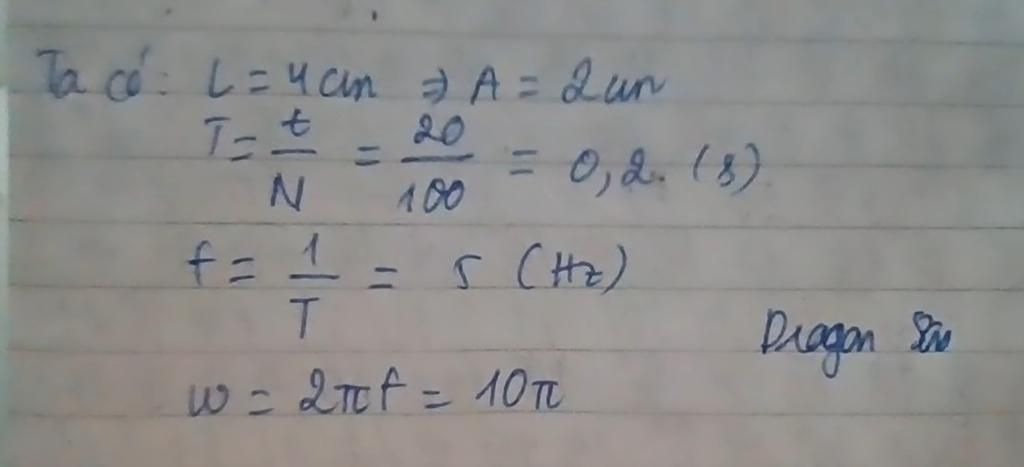 Ta có: L = 4cm => A = 2cm
T = t/N = 20/100 = 0,2. (s)
f = 1/T = 5 (Hz)
Dragon
w = 2πf = 10π